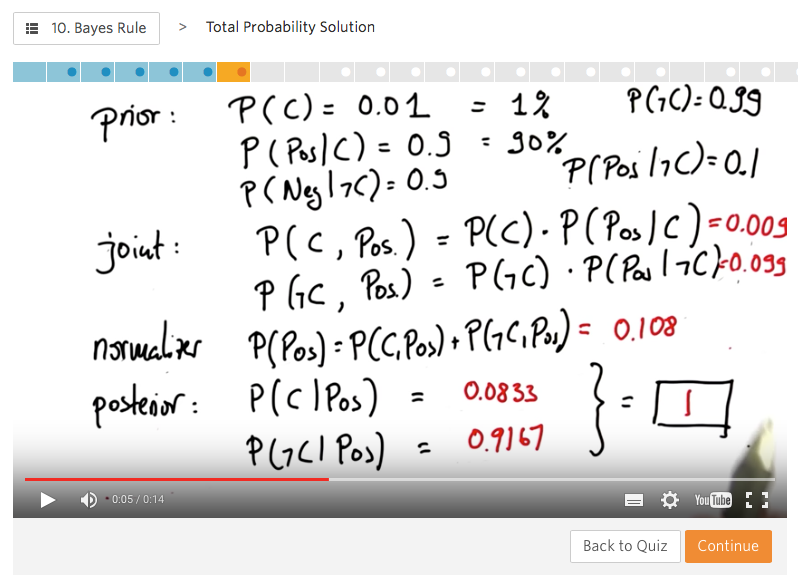 10. Bayes Rule > Total Probability Solution
prior: P(C) = 0.01 = 1% P(¬C) = 0.99
P(Pos|C) = 0.9 = 90%
P(Neg|¬C) = 0.9 P(Pos|¬C) = 0.1
joint: P(C, Pos.) = P(C) · P(Pos|C) = 0.009
P(¬C, Pos.) = P(¬C) · P(Pos|¬C) = 0.099
normalizer P(Pos) = P(C,Pos) + P(¬C,Pos) = 0.108
posterior: P(C|Pos) = 0.0833 } = 1
P(¬C|Pos) = 0.9167
0:05 / 0:14 YouTube
Back to Quiz Continue